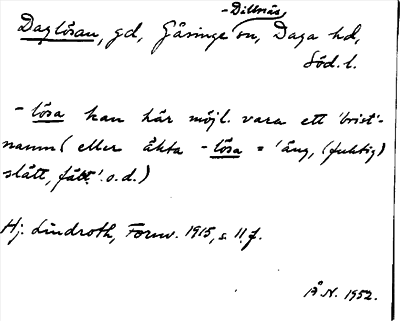 -Dillnäs
Daglösan, gd, Gåsinge sn, Daga hd,
Söd. l.
-lösa kan här möjl. vara ett 'brist'-
namn (eller äkta -lösa = 'äng, (fuktig)
slått, fått.' o.d.)
Hj. Lindroth, Fornv. 1915, s. 11 f.
Å N. 1952.